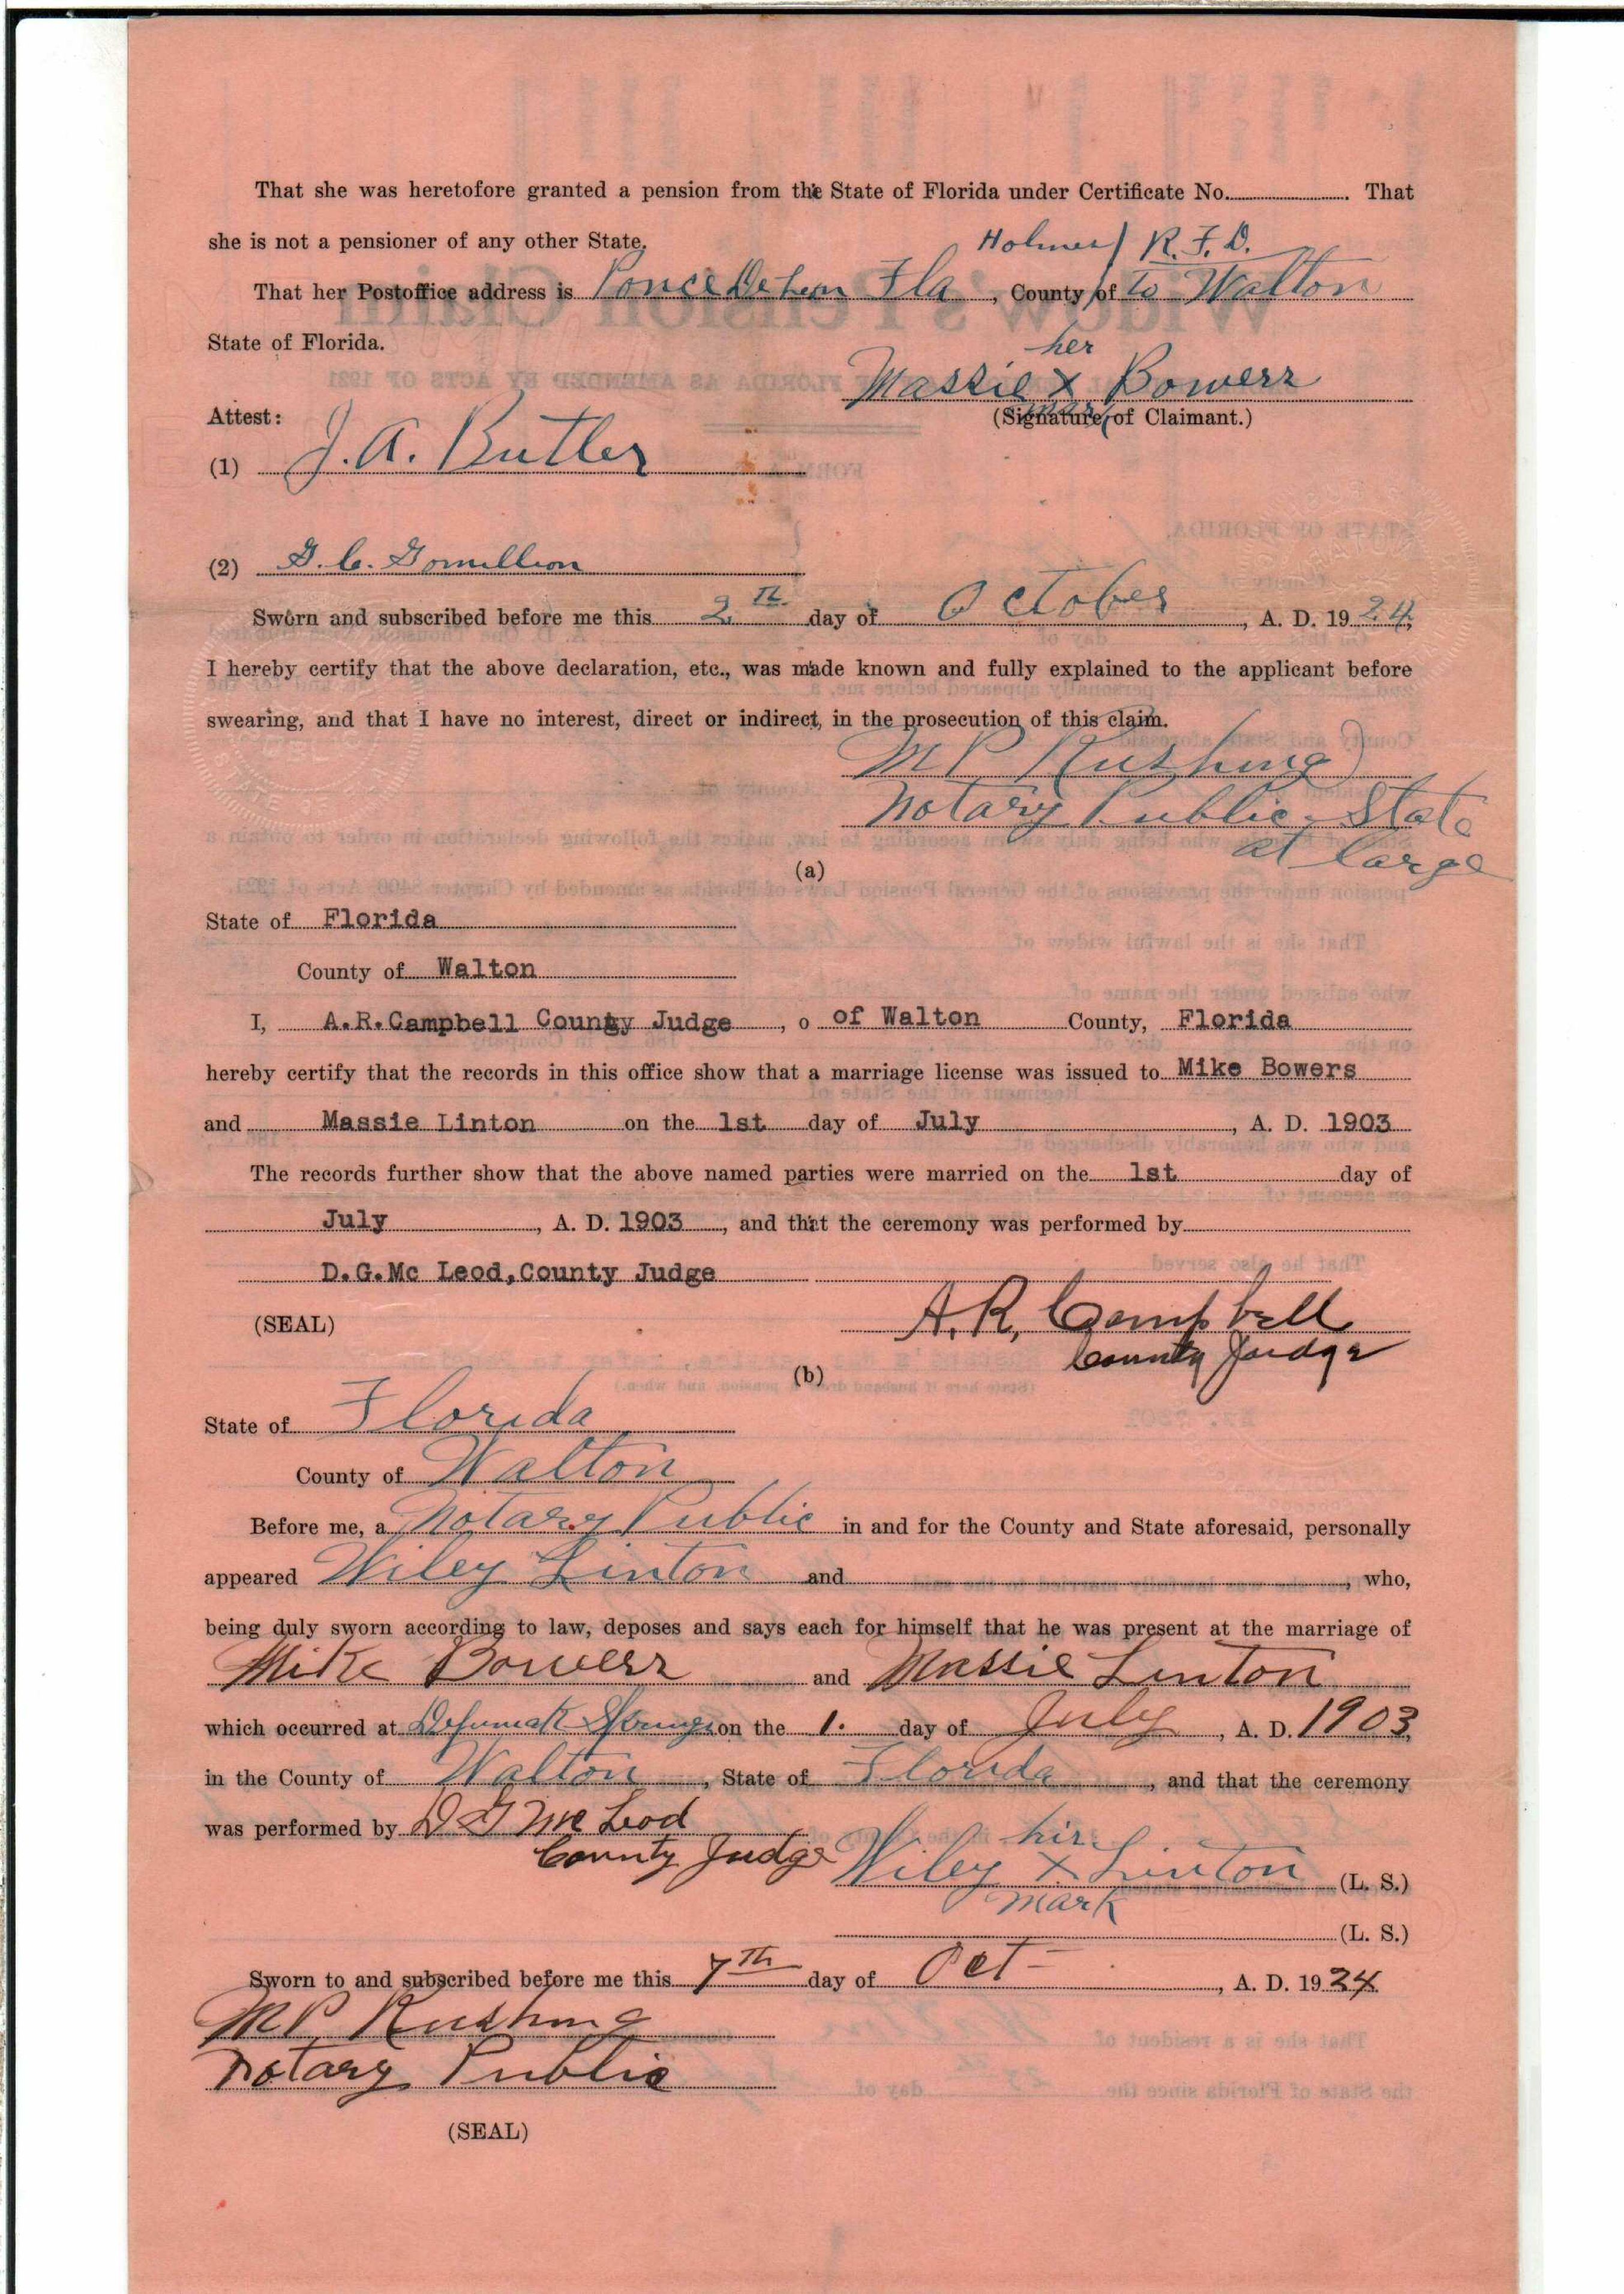 That she was heretofore granted a pension from the State of Florida under Certificate No. . That
she is not a pensioner of any other State.
Holmes R. F. D.
That her Postoffice address is Ponce De Leon Fla , County of to Walton
State of Florida.
her
Massie X Bowers
mark
(Signature of Claimant.)
Attest:
(1) J. A. Butler
(2) G. C. Gomillion
Sworn and subscribed before me this 2th day of October , A. D. 1924,
I hereby certify that the above declaration, etc., was made known and fully explained to the applicant before
swearing, and that I have no interest, direct or indirect, in the prosecution of this claim.
M P Rushing
Notary Public State
at large
(a)
State of Florida
County of Walton
I, A.R.Campbell County Judge , o of Walton County, Florida
hereby certify that the records in this office show that a marriage license was issued to Mike Bowers
and Massie Linton on the 1st day of July , A. D. 1903
The records further show that the above named parties were married on the 1st day of
July , A. D. 1903 , and that the ceremony was performed by
D.G.Mc Leod,County Judge
(SEAL)
A. R. Campbell
County Judge
(b)
State of Florida
County of Walton
Before me, a Notary Public in and for the County and State aforesaid, personally
appeared Wiley Linton and , who,
being duly sworn according to law, deposes and says each for himself that he was present at the marriage of
Mike Bowers and Massie Linton
which occurred at Defuniak Springs on the 1. day of July , A. D. 1903,
in the County of Walton , State of Florida , and that the ceremony
was performed by D G Mc Leod
County Judge
his
Wiley X Linton (L. S.)
mark
(L. S.)
Sworn to and subscribed before me this 7th day of Oct , A. D. 1924
M P Rushing
Notary Public
(SEAL)